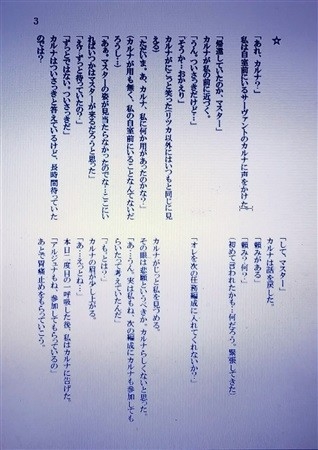 3
☆
「あれ、カルナ？」
私は自室前にいるサーヴァントのカルナに声をかけた。
「帰還していたのか、マスター」
カルナが私の前に近づく。
「うん、ついさっきだけど…」
「そうか…おかえり」
カルナがにこっと笑った(リツカ以外にはいつもと同じに見
える)
「ただいま。あ、カルナ、私に何か用があったのかな？」
(カルナが用も無く、私の自室前にいることなんてないだ
ろうし…)
「ああ。マスターの姿が見当たらなかったのでな…ここにい
ればいつかはマスターが来るだろうと思った」
「え？ずっと待っていたの？」
「ずっとではない、ついさっきだ」
カルナはついさっきと答えているけど、長時間待っていた
のでは？
「して、マスター」
カルナは話を戻した。
「頼みがある」
「頼み？何？」
(初めて言われたかも…何だろう。緊張してきた)
「オレを次の任務編成に入れてくれないか？」
カルナがじっと私を見つめる。
その眼は悲願というべきか、カルナらしくないと思った。
「あ…うん。実は私もね、次の編成にカルナも参加しても
らいたいって考えていたんだ」
「も、とは？」
カルナの肩が少し上がる。
「あ…えっとね…」
本日二度目の一呼吸した後、私はカルナに告げた。
「アルジュナもね、参加してもらっているの」
あとで胃痛止めをもらっていこう。